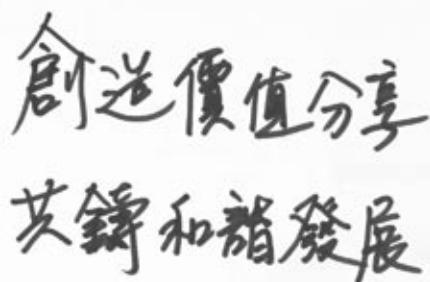 創造價值分享
共鑄和諧發展